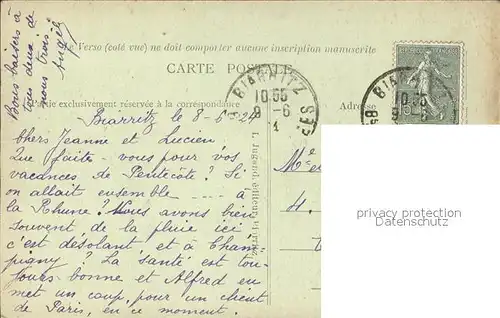 Bons baisers à
tous deux de
nous trois
Angèle
Le Verso (coté vue) ne doit comporter aucune inscription manuscrite
CARTE POSTALE
Partie exclusivement réservée à la correspondance
Adresse
BIARRITZ
10 55
8 - 6
BIARRITZ
10 55
Biarritz, le 8-6-24
Chers Jeanne et Lucien,
Que faite-vous pour vos
vacances de Pentecôte? Si
on allait ensemble ---- à
la Rhune? Nous avons bien
souvent de la pluie ici
c'est désolant et à Cham
pigny? La santé est tou-
jours bonne et Alfred en
met un coup, pour un client
de Paris, en ce moment.
privacy protection
Datenschutz